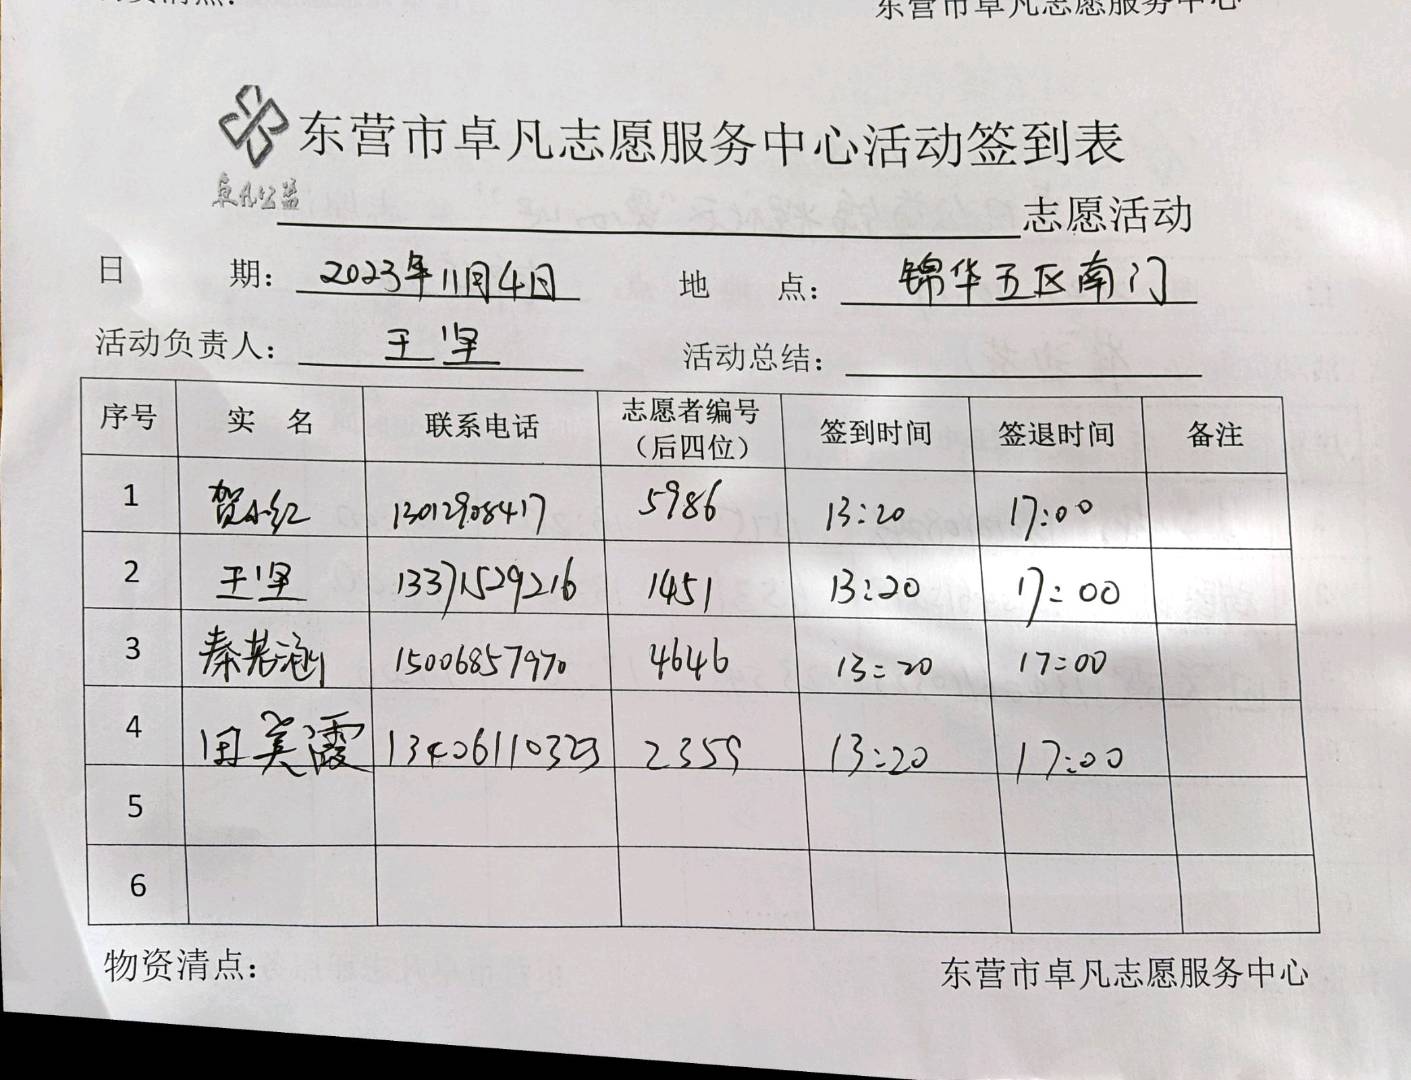 东营市卓凡志愿服务中心
东营市卓凡志愿服务中心活动签到表
卓凡公益
志愿活动
日 期： 2023年11月4日 地 点： 锦华五区南门
活动负责人： 王坚 活动总结：
序号 实 名 联系电话 志愿者编号（后四位） 签到时间 签退时间 备注
1 贺小红 13012908417 5986 13:20 17:00
2 王坚 13371529216 1451 13:20 17:00
3 秦艺涵 15006857970 4646 13:20 17:00
4 田美霞 13406110323 2359 13:20 17:00
5
6
物资清点： 东营市卓凡志愿服务中心